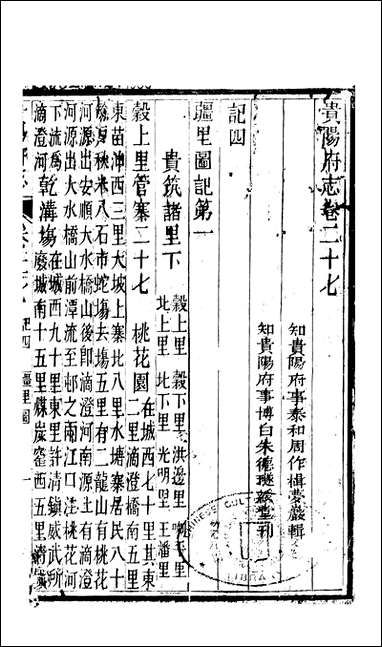 貴陽府志卷二十七
知貴陽府事泰和周作楫夢巖輯
知貴陽府事博白朱德璲綬堂刊
記四
疆里圖記第一
貴筑諸里下
穀上里 穀下里 洪邊里
北上里 北下里 光明里 王潘里
穀上里管寨二十七 桃花園在城西七十里其東二里滴澄橋南五里
東苗沖西三里大坡上寨北八里水塘寨居民八十
餘戶秋米八石市蛇場去場五里有二龍山有桃花
河源出安順大水橋山後即滴澄河南源土有滴澄
河源出大水橋山前潭流至邨之兩江口注桃花河
下流為滴澄河 乾溝塲在城西九十里東里許清鎮威武所廢城南十五里煤炭窰西五里清鎮
記四 疆里圖 一